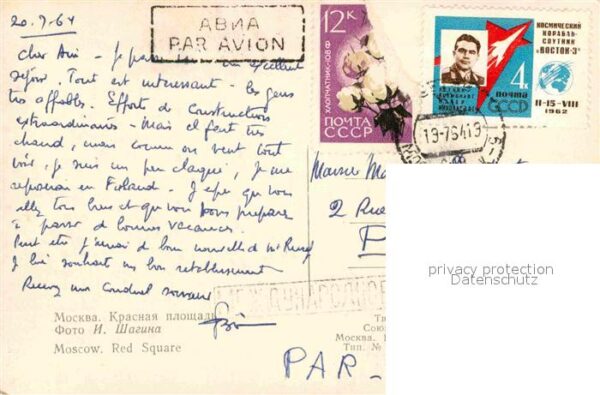 20.7.64
АВИА
PAR AVION
Cher Ami - Je passe un excellent
séjour. Tout est intéressant - les gens
très affables. Efforts de constructions
extraordinaires - Mais il fait très
chaud, mais comme on veut tout
voir, je suis un peu claqué, je me
reposerai en Finland. J'espère que vous
allez tous bien et que vous vous préparez
à passer de bonnes vacances.
Peut être j'aurai de bonnes nouvelles de
Je lui souhaite un bon rétablissement
Recevez mon cordial souvenir
12 К
ХЛОПЧАТНИК-108 Ф
ПОЧТА
СССР
КОСМИЧЕСКИЙ
КОРАБЛЬ-
СПУТНИК
"ВОСТОК-3"
4
ПОЧТА
СССР
11-15-VIII
1962
19-7641
2 Rue
privacy protection
Datenschutz
МЕЖДУНАРОДНОЕ
PAR-
Москва. Красная площадь
Фото И. Шагина
Moscow. Red Square
Союз
Москва.
Тип. №